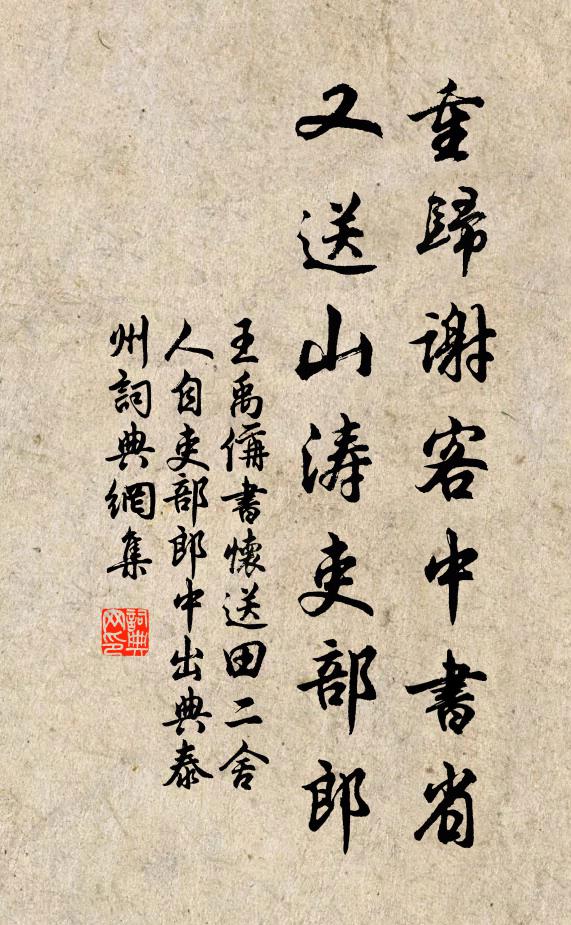 重歸謝客中書省
又送山涛吏部郎
王禹偁書懷送田二舍
人自吏部郎中出典泰
州詞典網集
詞典
网印